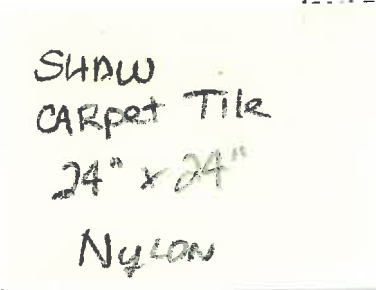 SHAW
CARpet Tile
24" x 24"
NyLON